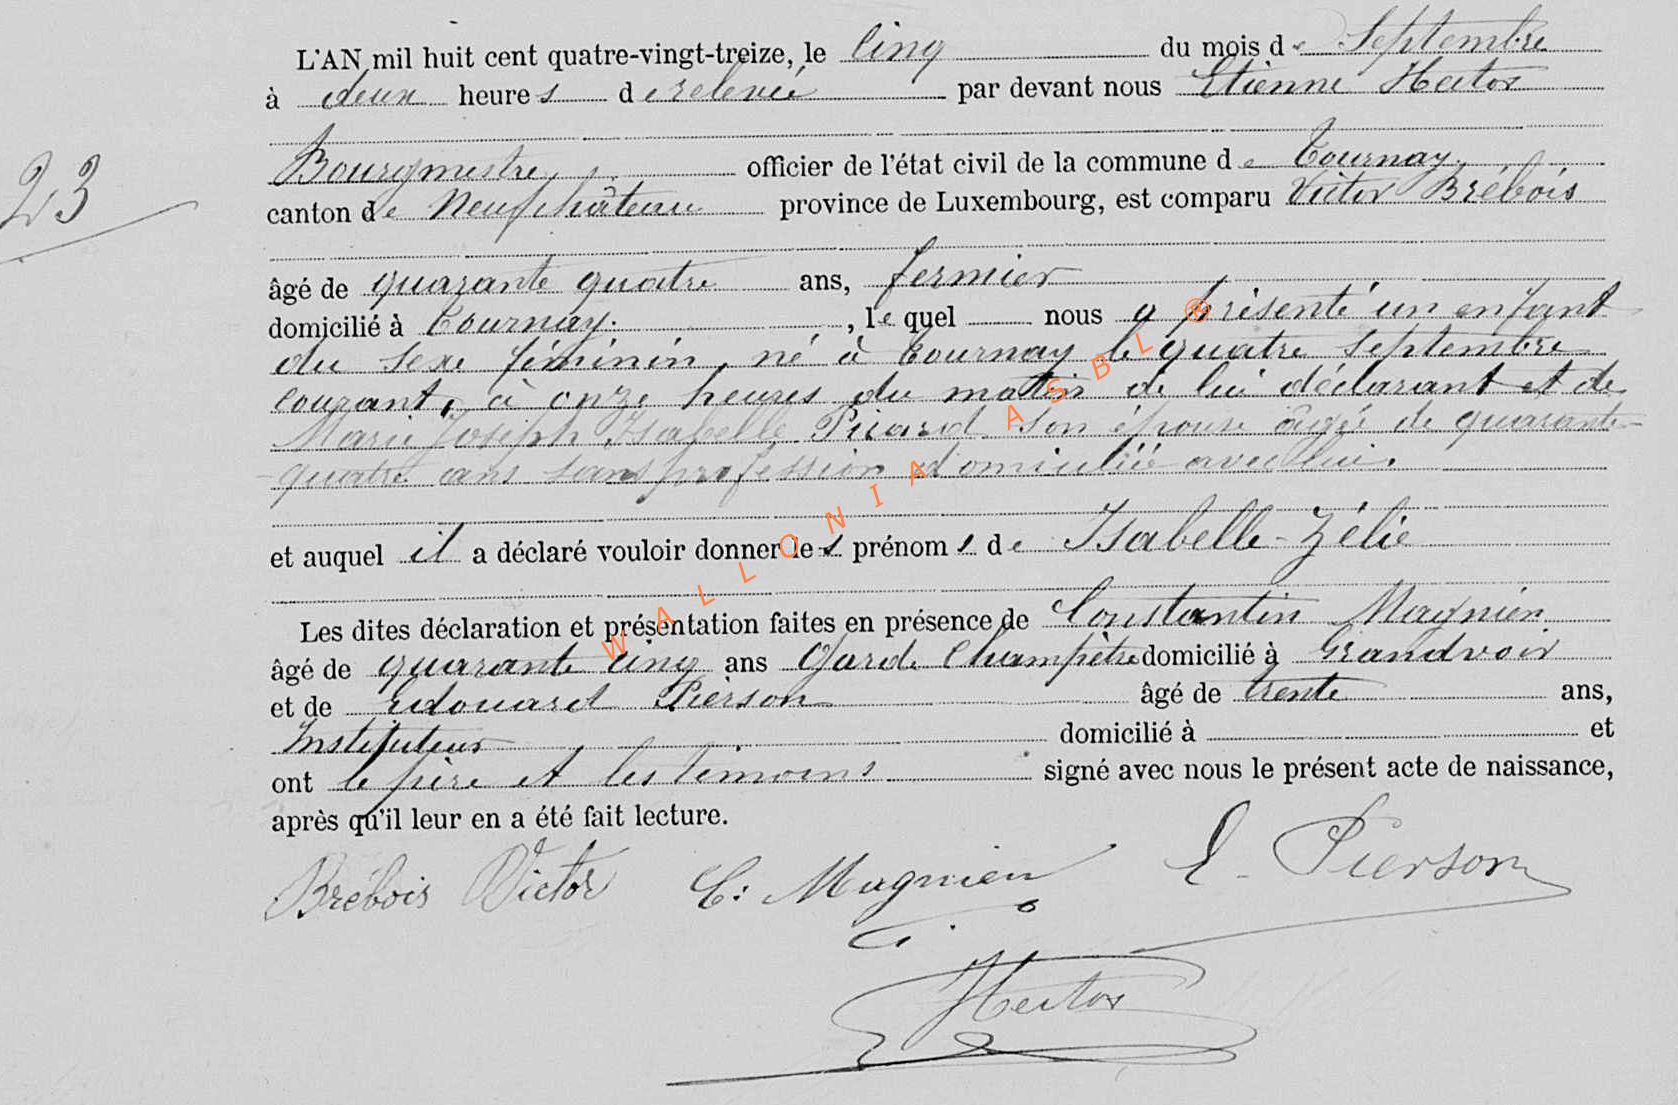 L'AN mil huit cent quatre-vingt-treize, le cinq du mois de Septembre
à deux heures de relevée par devant nous Etienne Hector
Bourgmestre, officier de l'état civil de la commune de Tournay,
23
canton de Neufchâteau province de Luxembourg, est comparu Victor Brébois
âgé de quarante quatre ans, fermier
domicilié à Tournay. , le quel nous a présenté un enfant
du sexe féminin, né à Tournay le quatre Septembre
courant, à onze heures du matin de lui déclarant et de
Marie Joseph Isabelle Picard son épouse âgée de quarante-
-quatre ans sans profession domiciliée avec lui.
et auquel il a déclaré vouloir donner les prénoms de Isabelle-Zélie
Les dites déclaration et présentation faites en présence de Constantin Magnien,
âgé de quarante cinq ans Garde Champêtre domicilié à Grandvoir
et de Edouard Pierson âgé de trente ans,
Instituteur domicilié à et
ont le père et les témoins signé avec nous le présent acte de naissance,
après qu'il leur en a été fait lecture.
Brébois Victor C: Magnien E. Pierson
Hector
WALLONIA ASBL ®